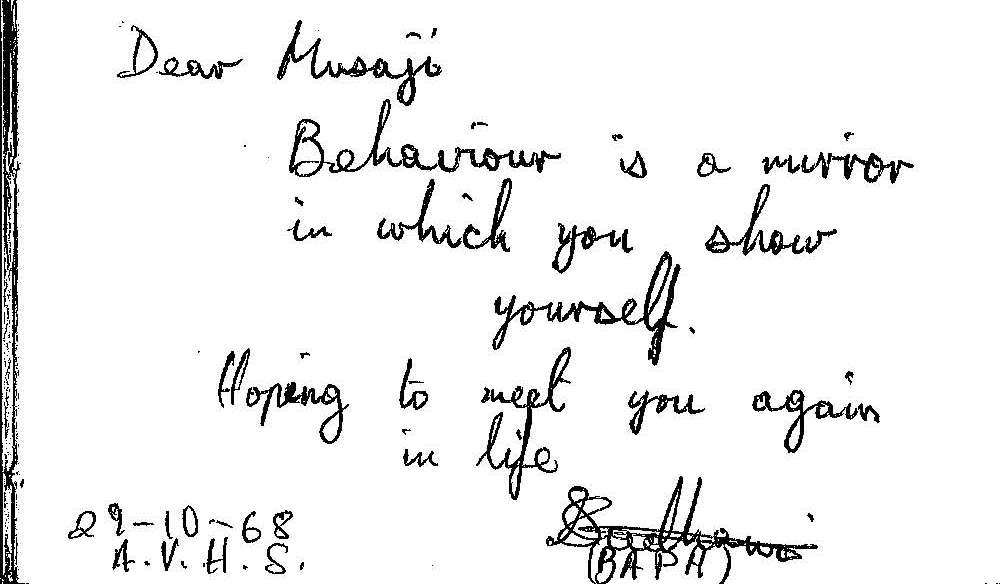 Dear Musaji
Behaviour is a mirror
in which you show
yourself.
Hoping to meet you again
in life
29-10-68
A.V.H.S.
(BAPA)